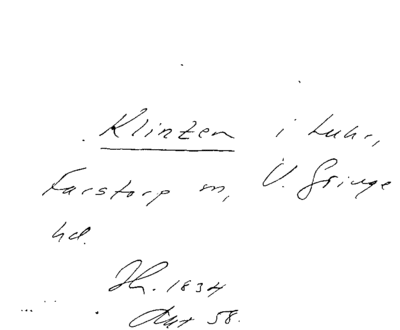 Klintzen i Luhr,
Farstorp sn, V. Göinge
hd.
Jh. 1834
Akt 58.